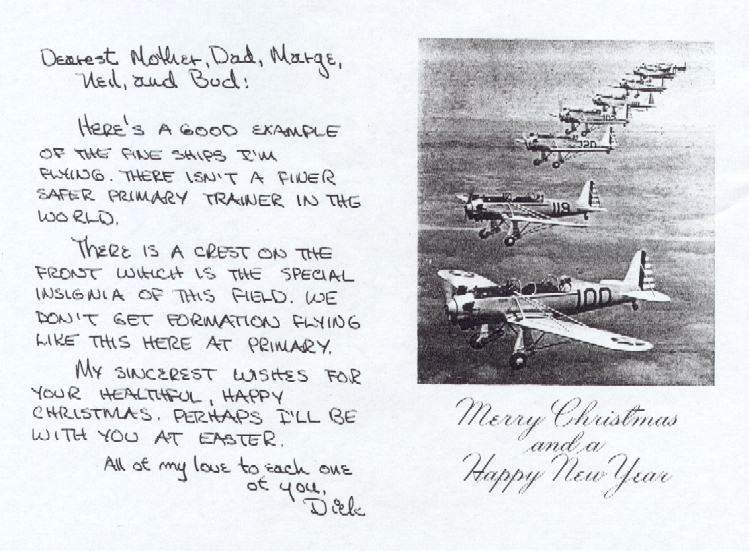 Dearest Mother, Dad, Marge,
Neil, and Bud:
HERE'S A GOOD EXAMPLE
OF THE FINE SHIPS I'M
FLYING. THERE ISN'T A FINER
SAFER PRIMARY TRAINER IN THE
WORLD.
THERE IS A CREST ON THE
FRONT WHICH IS THE SPECIAL
INSIGNIA OF THIS FIELD. WE
DON'T GET FORMATION FLYING
LIKE THIS HERE AT PRIMARY.
MY SINCEREST WISHES FOR
YOUR HEALTHFUL, HAPPY
CHRISTMAS. PERHAPS I'LL BE
WITH YOU AT EASTER.
All of my love to each one
of you,
Dick
120
118
100
Merry Christmas
and a
Happy New Year